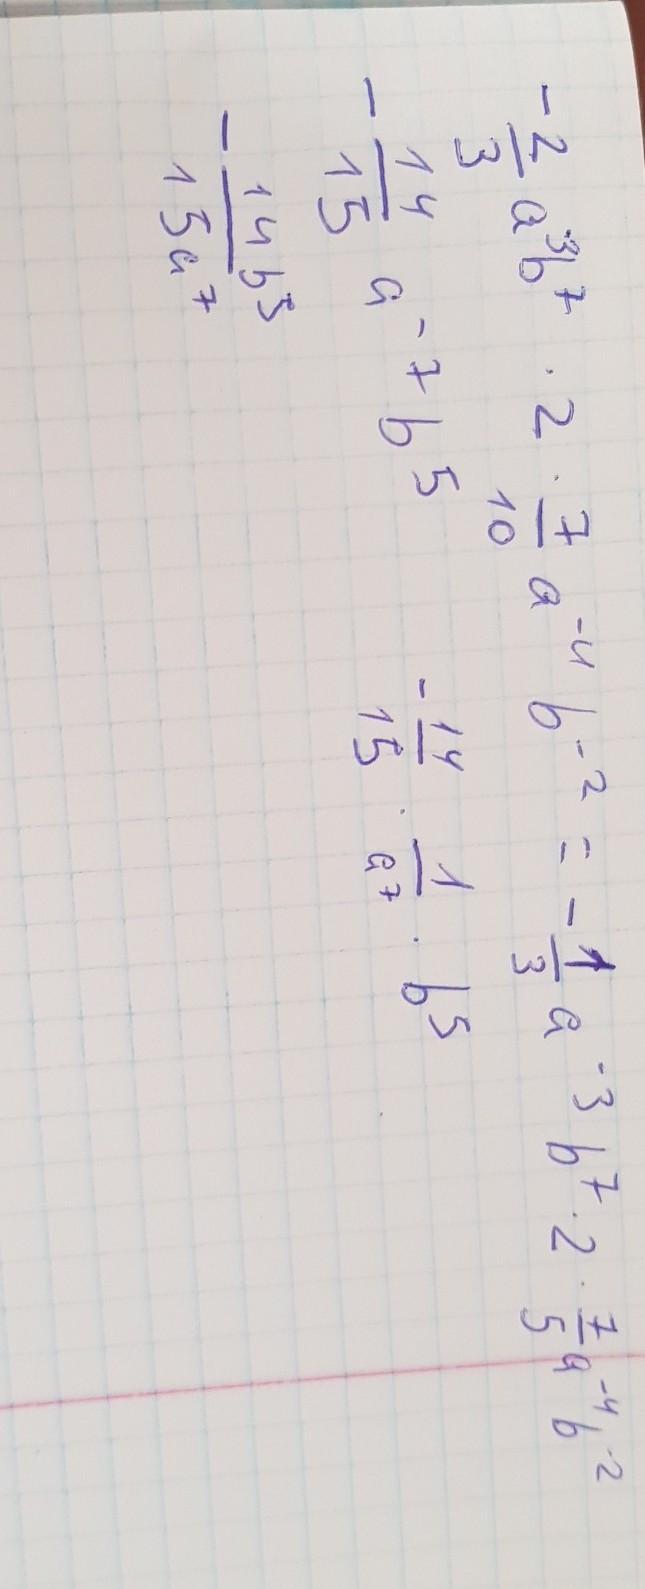 -2/3 a³b⁷ · 2 · 7/10 a⁻⁴ b⁻² = -1/3 a⁻³ b⁷ · 2 · 7/5 a⁻⁴ b⁻²
-14/15 a⁻⁷ b⁵ -14/15 · 1/a⁷ · b⁵
-14b⁵/15a⁷